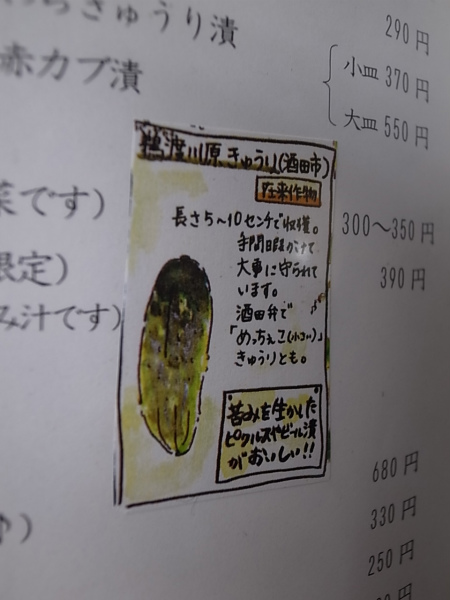 きゅうり漬 290円
赤カブ漬
小皿 370円
大皿 550円
鵜渡川原きゅうり(酒田市)
在来作物
長さ5〜10センチで収穫。
手間暇かけて
大事に守られて
います。
酒田弁で
「めっちぇこ(小さい)」
きゅうりとも。
苦みを生かした
ピクルスやビール漬
がおいしい!!
菜です) 300〜350円
限定) 390円
み汁です)
680円
330円
250円